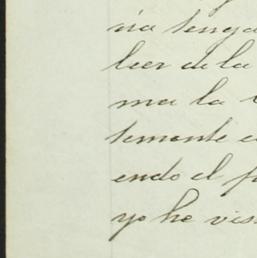 ria tenga
leer de la
ma la
temente
endo el
yo he vis